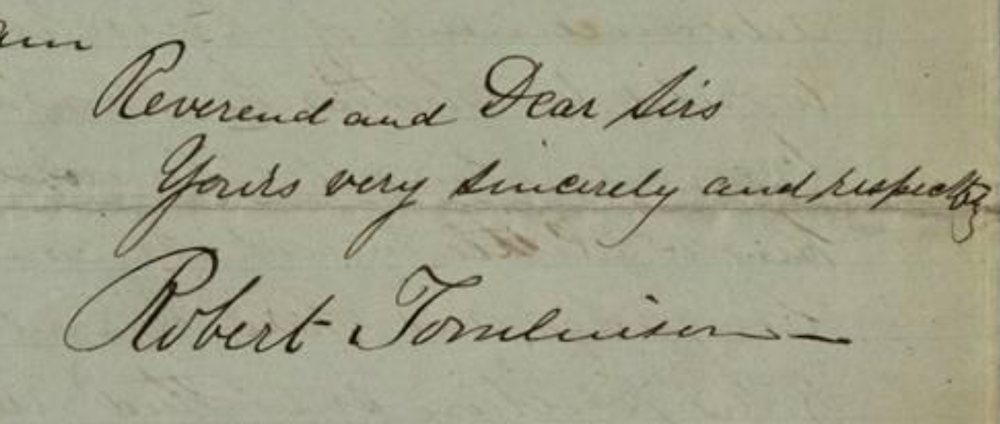 am
Reverend and Dear Sirs
Yours very sincerely and respectfy
Robert Tomlinson